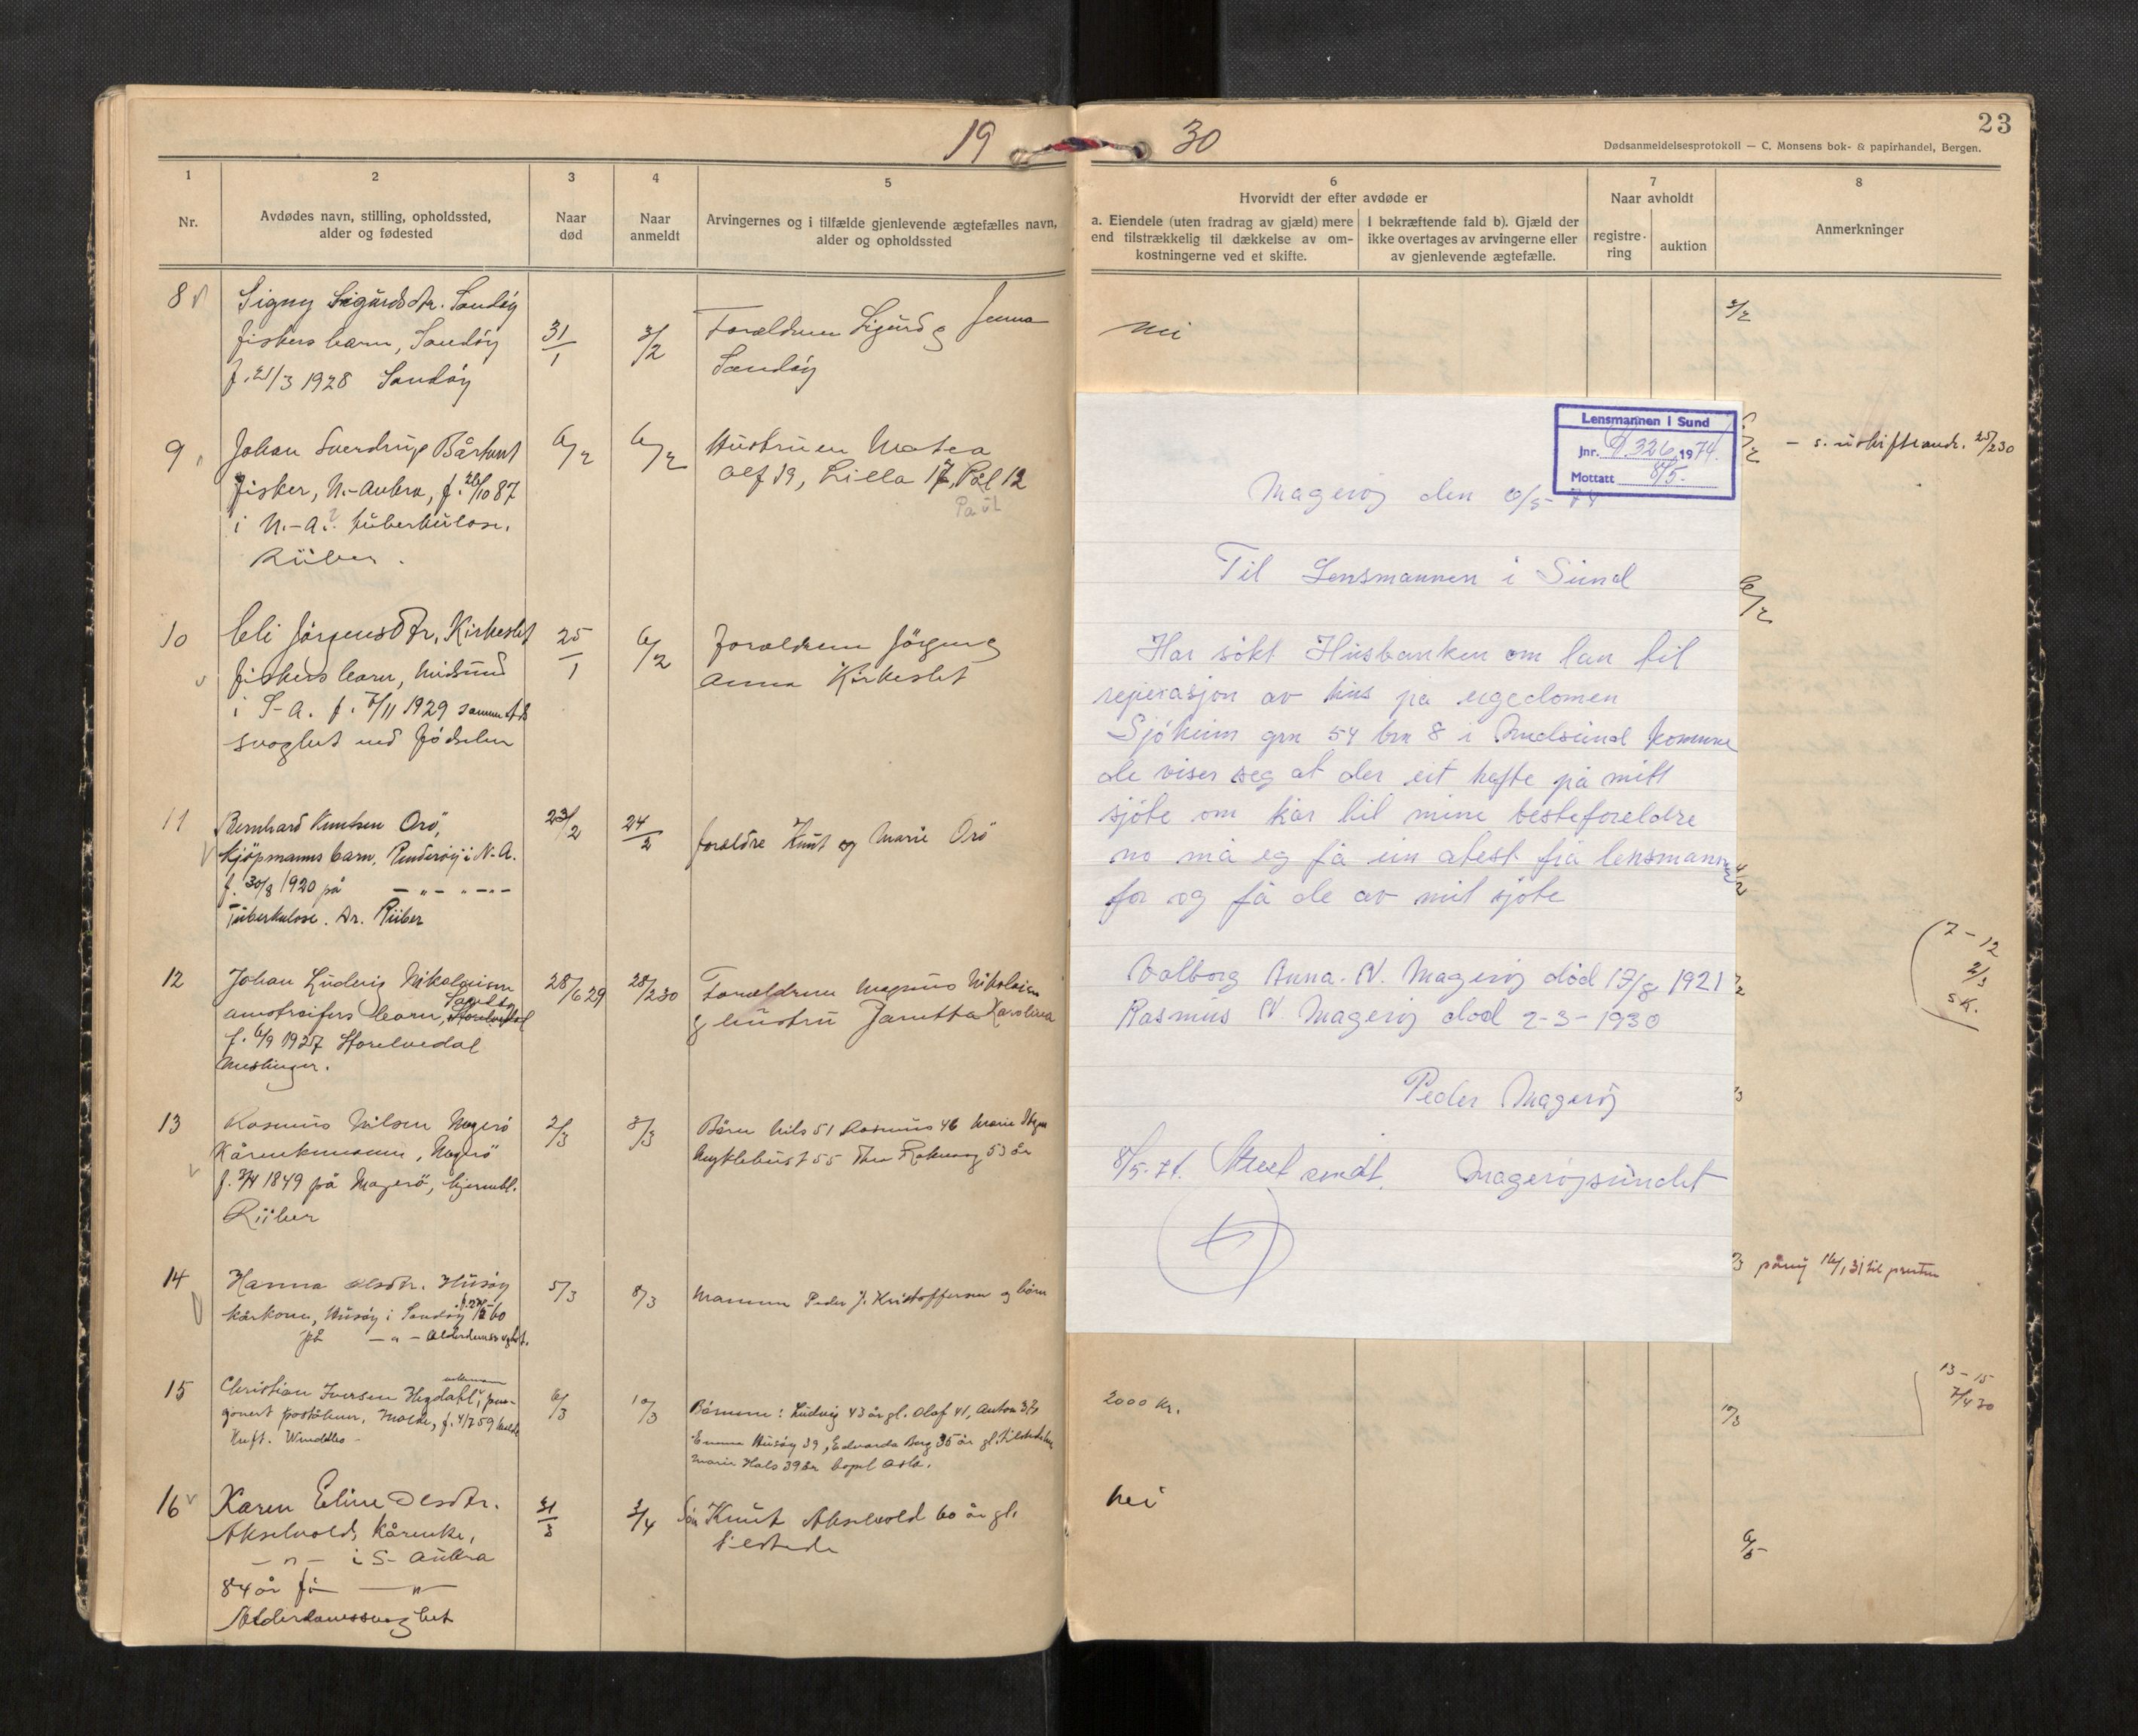 19
30
23
Dødsanmeldelsesprotokoll — C. Monsens bok- & papirhandel, Bergen.
1
2
3
4
5
6
7
8
Nr.
Avdødes navn, stilling, opholdssted,
alder og fødested
Naar
død
Naar
anmeldt
Arvingernes og i tilfælde gjenlevende ægtefælles navn,
alder og opholdssted
Hvorvidt der efter avdøde er
a. Eiendele (uten fradrag av gjæld) mere
end tilstrækkelig til dækkelse av om-
kostningerne ved et skifte.
I bekræftende fald b). Gjæld der
ikke overtages av arvingerne eller
av gjenlevende ægtefælle.
Naar avholdt
registre-
ring
auktion
Anmerkninger
8
Signy Sigurdsdtr. Sandøy
fiskers barn, Sandøy
f. 21/3 1928 Sandøy
31/1
3/2
Forældrene Sigurd g Jenna
Sandøy
nei
3/2
9
Johan Sverdrup Bårtvet
fisker, N.-Aukra, f. 26/10 87
i N.-A. tuberkulose.
Riiber.
6/2
6/2
Hustruen Matea
Alf 19, Lilla 17, Pål 12
Paul
– s. uskifteandr. 25/2 30
10
Eli Jørgensdtr. Kirkeslet
fiskers barn, Midsund
i S-A. f. 7/11 1929 samme st.
svaghet ved fødselen
25/1
6/2
Forældrene Jørgen g
Anna Kirkeslet
6/2
11
Bernhard Knutsen Orö,
kjöpmanns barn, Rinderöy i N-A.
f. 30/8 1920 på — " — " — " —
Tuberkulose. Dr. Riiber
23/2
24/2
foreldre Knut og Marie Orö
12
Johan Ludvig Nikolaisen
omstreifers barn,
f. 6/9 1927 Storelvedal
Meslinger.
28/6 29
28/2 30
Forældrene Magnus Nikolaisen
g hustru Janetta Karolina
7 – 12
2/3
S.K.
13
Rasmus Nilsen Magerö
Kårenkemann, Magerö
f. 3/4 1849 på Magerö, hjernebl.
Riiber
2/3
8/3
Børn Nils 51 Rasmus 46 Marie
Myklebust 55 53 år
14
Hanna Olsdtr. Husøy
kårkone, Husøy i Sandøy f. 27/2 60
på — " — Alderdomssvaghet.
5/3
8/3
Mannen Peder J. Kristoffersen og børn
15
Christian Iversen Hegdahl, enkemann
pen-
sjonert poståbner, Molde, f. 4/7 59
6/3
10/3
Børnene: Ludvig 43 år gl. Olaf 41, Anton 37
Emma Husøy 39, Edvarda Berg 35 år gl.
Marie Hals 39 år bopel Oslo.
2000 kr.
10/3
13 – 15
7/4 30
16
Karen Eline Olsdtr.
Akselvold, kårenke,
— " — i S-Aukra
84 år f. i — " —
Alderdomssvaghet
31/3
3/4
Søn Knut Akselvold 60 år gl.
nei
6/5
Lensmannen i Sund
Jnr. 326 1974.
Mottatt 8/5.
Magerøy den 6/5- 74
Til Lensmannen i Sund
Har søkt Husbanken om lan til
reperasjon av hus på eigedomen
Sjøheim grn 54 brn 8 i Midsund Komune
de viser seg at der eit hefte på mitt
sjöte om kår til mine besteforeldre
no må eg få ein atest frå lensmannen
for og få de av mit sjöte
Valborg Anna. N. Magerøy död 17/8 1921
Rasmus N. Magerøy död 2-3-1930
Peder Magerøy
Magerøysundet
8/5-74. Attest sendt.